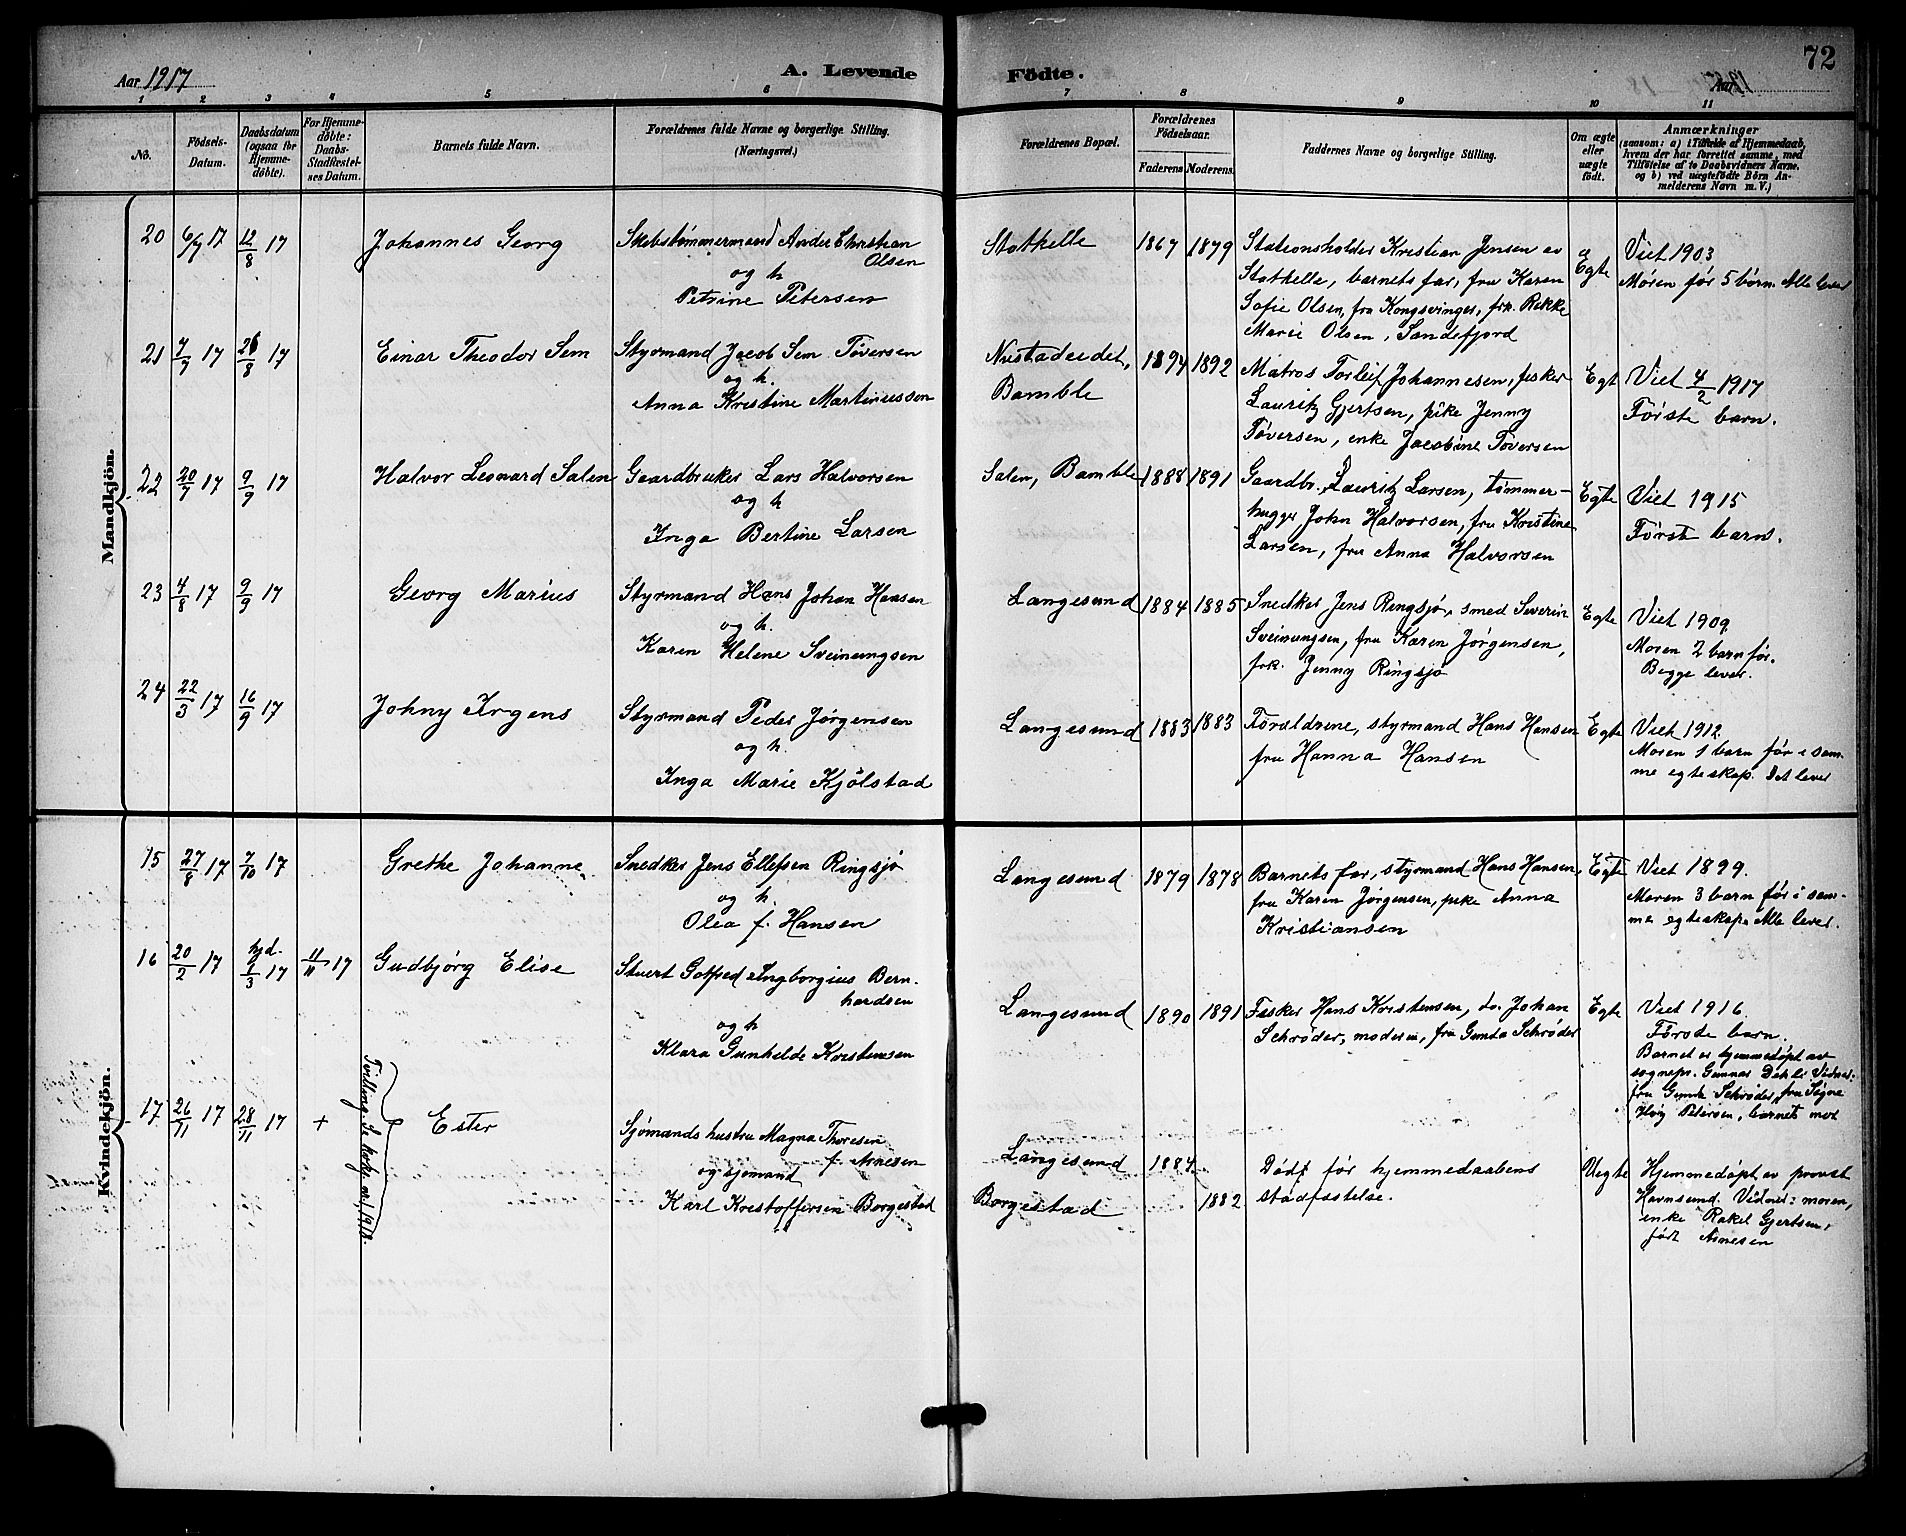 72
Aar 1917
A. Levende Födte.
1 2 3 4 5 6 7 8 9 10 11
No.
Födsels-
Datum.
Daabsdatum
(ogsaa for
Hjemme-
döbte).
For Hjemme-
döbte:
Daabs-
Stadfæstel-
ses Datum.
Barnets fulde Navn.
Forældrenes fulde Navne og borgerlige Stilling.
(Næringsvei.)
Forældrenes Bopæl.
Forældrenes
Födselsaar.
Faderens. Moderens.
Faddernes Navne og borgerlige Stilling.
Om ægte
eller
uægte
födt.
Anmærkninger
(saasom: a) i Tilfælde af Hjemmedaab,
hvem der har forrettet samme, med
Tilföielse af to Daabsvidners Navne,
og b) ved uægtefödte Börn An-
melderens Navn m. V.)
Mandkjön.
20 6/7 17 12/8 17 Johannes Georg
Skibstømmermand Anders Christian
Olsen
og h
Petrine Petersen
Stathelle 1867 1879
Stationsholder Kristian Jensen av
Stathelle, barnets far, fru Karen
Sofie Olsen, fra Kongsvinger, frk. Rikke
Marie Olsen, Sandefjord
Egte
Viet 1903
Moren før 5 børn. Alle lever
21 7/7 17 26/8 17 Einar Theodor Sem
Styrmand Jacob Sem Tøversen
og h.
Anna Kristine Martinussen
Nustadeidet,
Bamble
1894 1892
Matros Torleif Johannesen, fisker
Lauritz Gjertsen, pike Jenny
Tøversen, enke Jacobine Tøversen
Egt
Viet 4/2 1917
Første barn.
22 20/7 17 9/9 17 Halvor Leonard Salen
Gaardbruker Lars Halvorsen
og h
Inga Bertine Larsen
Salen, Bamble 1888 1891
Gaardbr. Lauritz Larsen, tømmer-
hugger John Halvorsen, fru Kristine
Larsen, fru Anna Halvorsen
Egte
Viet 1915
Første barn.
23 4/8 17 9/9 17 Georg Marius
Styrmand Hans Johan Hansen
og h.
Karen Helene Sveinungsen
Langesund 1884 1885
Snedker Jens Ringsjø, smed Severin
Sveinungsen, fru Karen Jørgensen,
frk. Jenny Ringsjø
Egte
Viet 1909
Moren 2 barn før.
Begge lever.
24 22/3 17 16/9 17 Johny Irgens
Styrmand Peder Jørgensen
og h.
Inga Marie Kjølstad
Langesund 1883 1883
Forældrene, styrmand Hans Hansen
fru Hanna Hansen
Egte
Viet 1912
Moren 1 barn før i sam-
me egteskap. Det lever
Kvindekjön.
15 27/8 17 7/10 17 Grethe Johanne
Snedker Jens Ellefsen Ringsjø
og h.
Olea f. Hansen
Langesund 1879 1878
Barnets far, styrmand Hans Hansen,
fru Karen Jørgensen, pike Anna
Kristiansen
Egte
Viet 1899.
Moren 3 barn før i sam-
me egteskap. Alle lever.
16 20/2 17 hjd. 9/3 17 11/11 17 Gudbjørg Elise
Stuert Gotfred Ingborgius Bern-
hardsen
og h
Klara Gunhilde Kristensen
Langesund 1890 1891
Fisker Hans Kristensen, do. Johan
Schrøder, moderen, fru Gunda Schrøder
Egte
Viet 1916.
Første barn.
Barnet er hjemmedøpt av
sognepr. Gunnar Dehli Vidner:
fru Gunda Schrøder, fru Signe
Høig Petersen, barnets mor
17 26/11 17 28/11 17 + Ester
Sjømands hustru Magna Thoresen
f. Arnesen
og sjømand
Karl Kristoffersen Borgestad
Langesund
Borgestad
1884
1882
Død før hjemmedaabens
stadfæstelse.
Uegte
Hjemmedøpt av provst
Havnsund. Vidner: moren,
enke Rakel Gjertsen,
født Arnesen